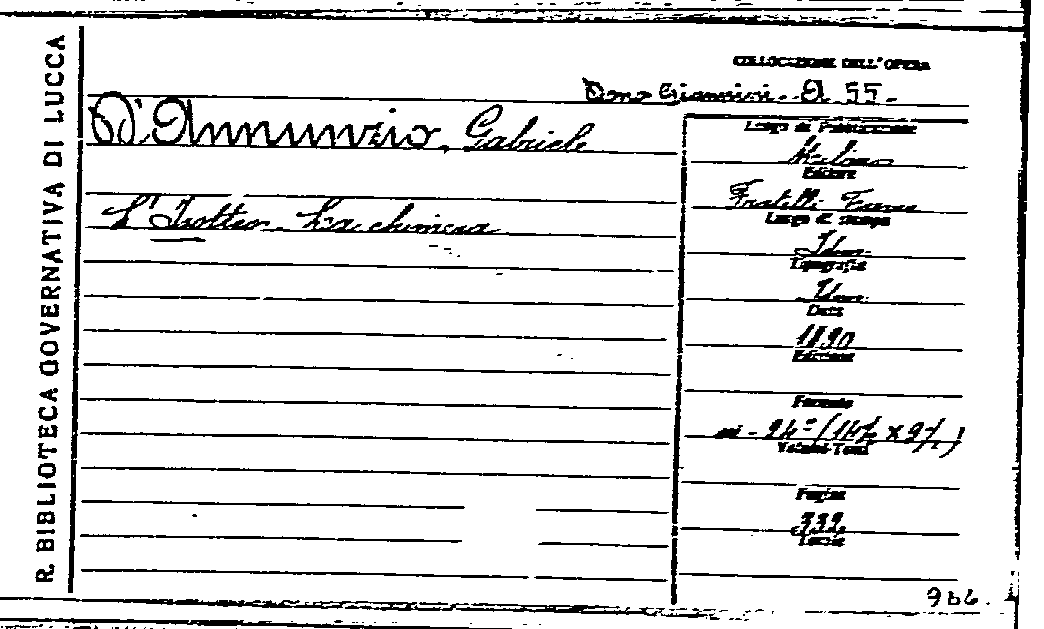 R. BIBLIOTECA GOVERNATIVA DI LUCCA
COLLOCAZIONE DELL'OPERA
Dono Giannini. A 55.
D'Annunzio, Gabriele
L'Isottèo. La chimera
Luogo di Pubblicazione
Milano
Editore
Fratelli Treves
Luogo di stampa
Idem
Tipografia
Idem
Data
1890
Edizione
Formato
Volumi-Tomi
Pagine
Tavole